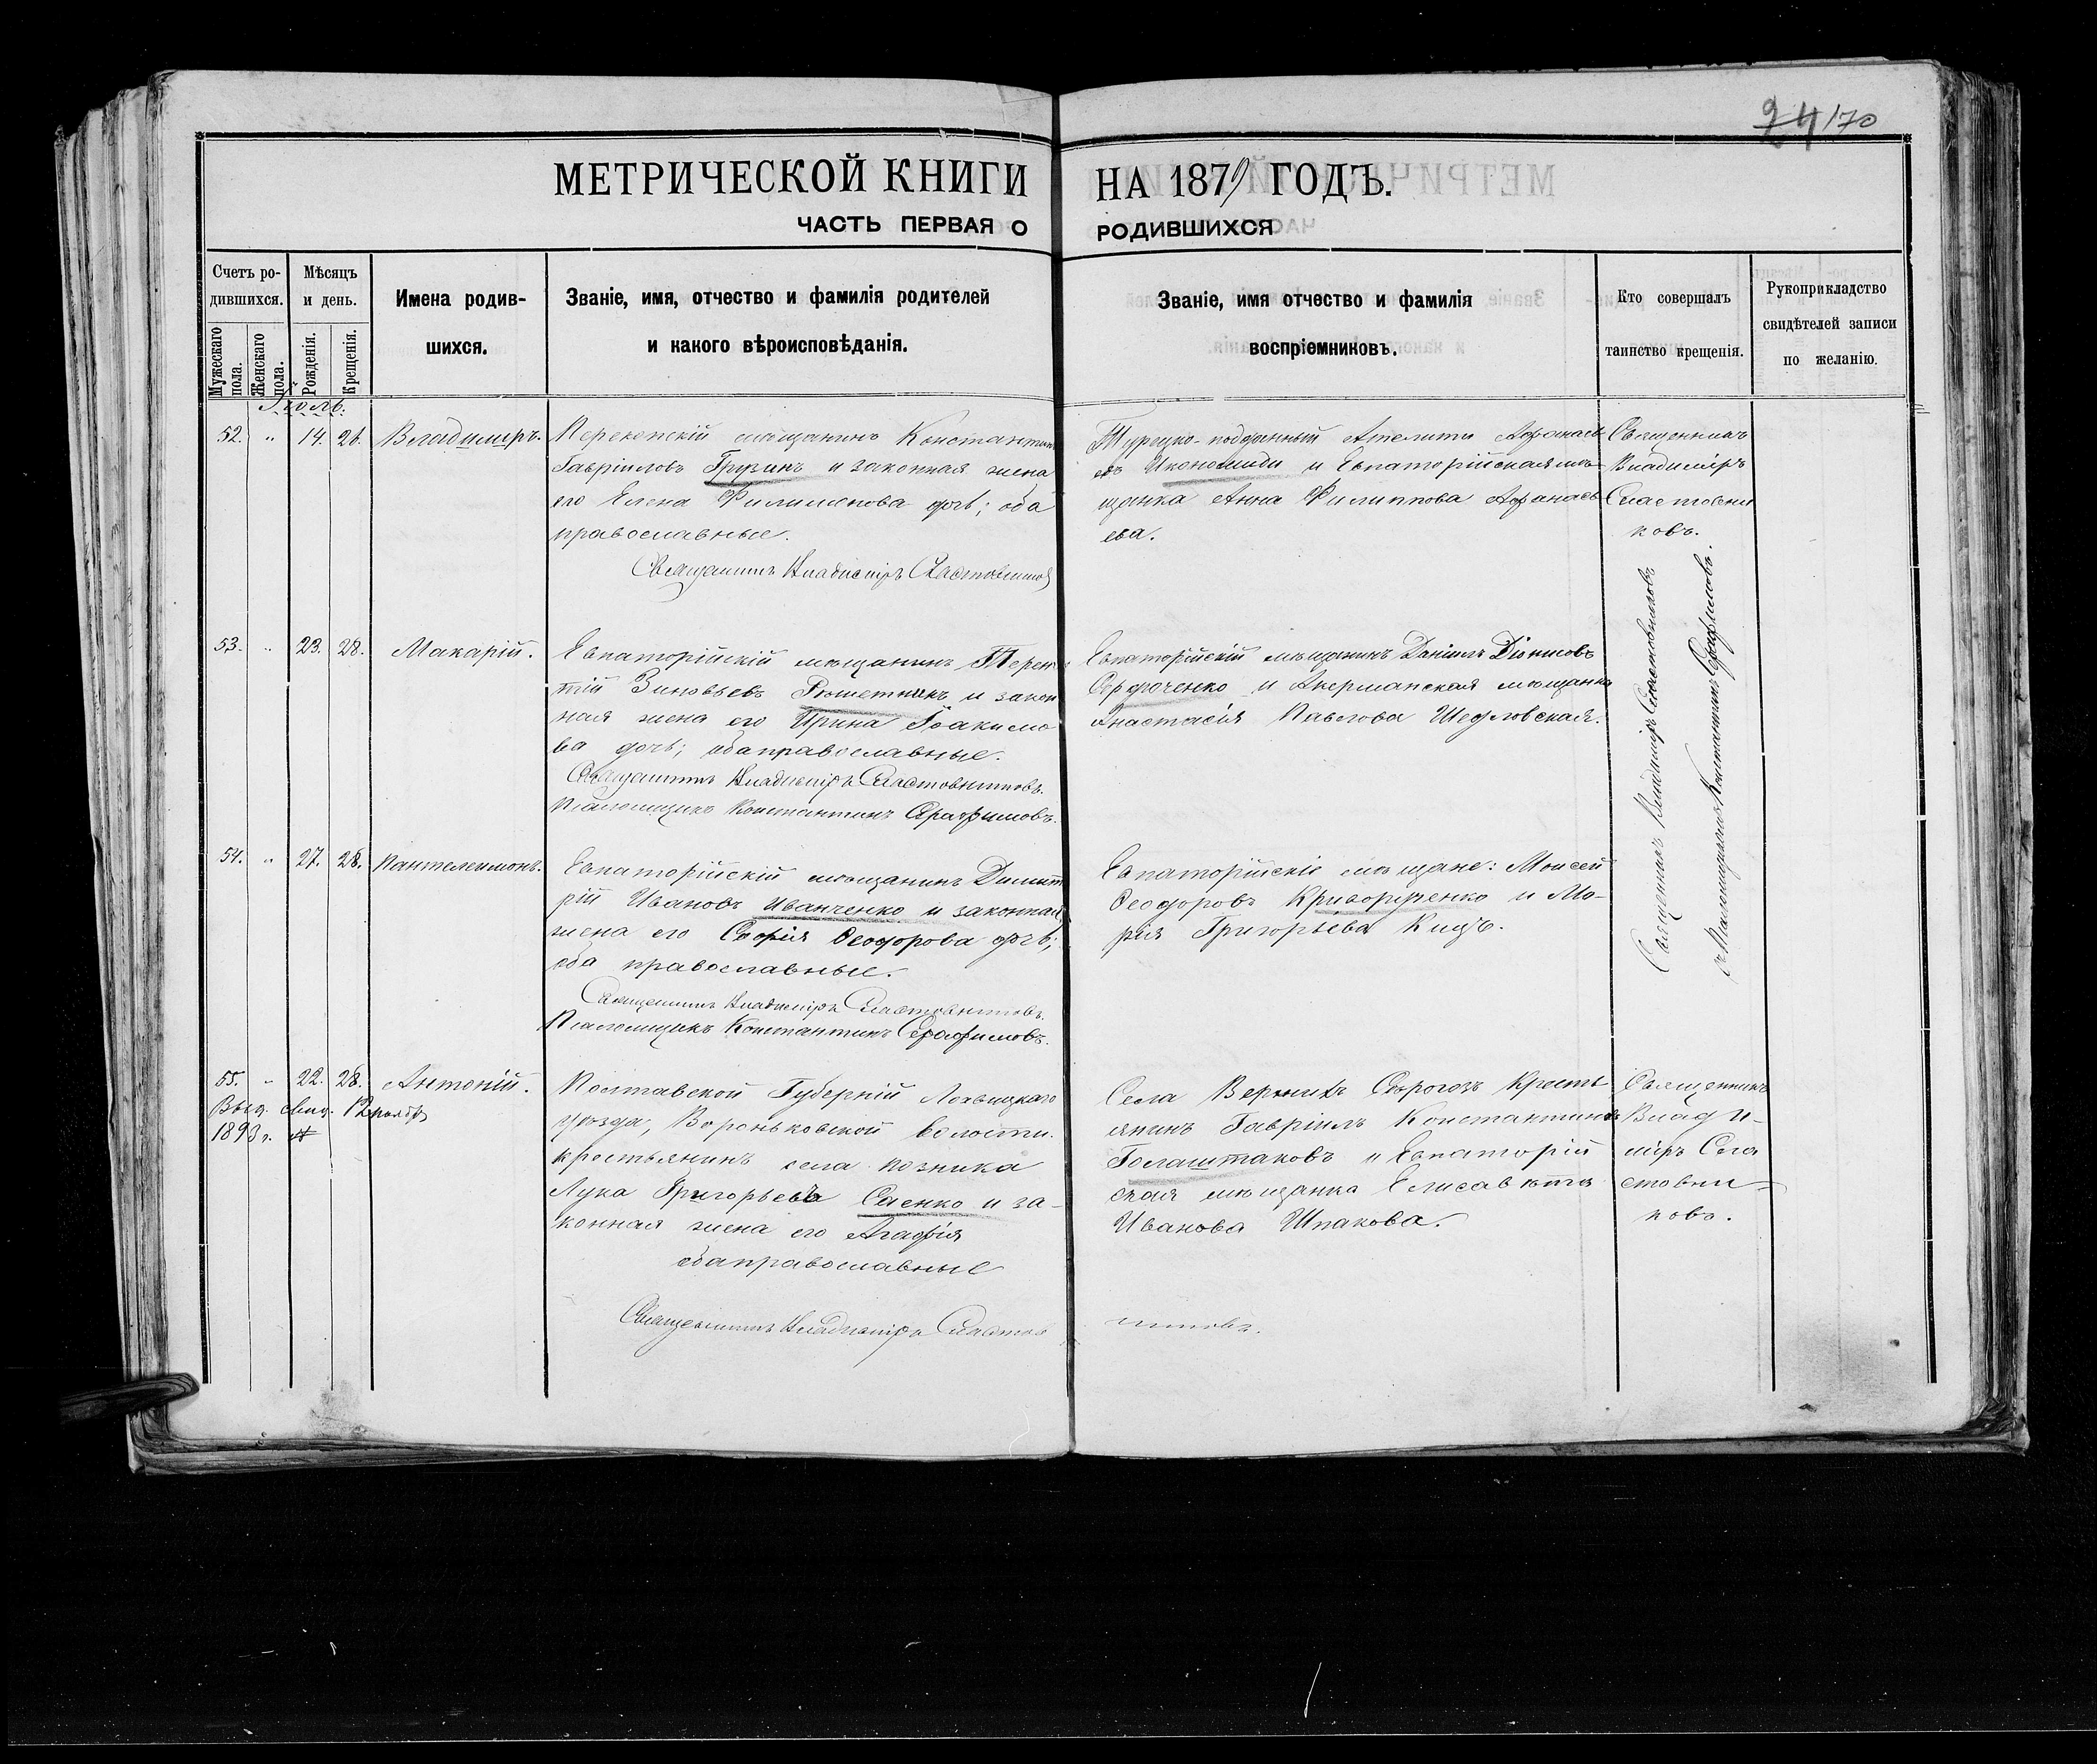 24 170
МЕТРИЧЕСКОЙ КНИГИ НА 1879 ГОДЪ.
ЧАСТЬ ПЕРВАЯ О РОДИВШИХСЯ
Счетъ ро-
дившихся.
Мужескаго пола.
Женскаго пола.
Мѣсяцъ
и день.
Рожденія.
Крещенія.
Имена родив-
шихся.
Званіе, имя, отчество и фамилія родителей
и какого вѣроисповѣданія.
Званіе, имя отчество и фамилія
воспріемниковъ.
Кто совершалъ
таинство крещенія.
Рукоприкладство
свидѣтелей записи
по желанію.
Іюль.
52. " 14. 26. Владиміръ.
Перекопскій мѣщанинъ Константинъ
Гавріиловъ Грузинъ и законная жена
его Елена Филимонова дочь; оба
православные.
Священникъ Владиміръ Сластовниковъ
Турецко-подданный Афанась
евъ Икономиди и Евпаторійская мѣ-
щанка Анна Филиппова Афанась
ева.
Священникъ
Владиміръ
Сластовни
ковъ.
53. " 23. 28. Макарій.
Евпаторійскій мѣщанинъ Терен
тій Зиновьевъ Рѣшетникъ и закон
ная жена его Ирина Іоакимо
ва дочь; оба православные.
Священникъ Владиміръ Сластовниковъ.
Псаломщикъ Константинъ Серафимовъ.
Евпаторійскій мѣщанинъ Даніилъ Діонисовъ
и Акерманская мѣщанка
Анастасія Павлова Шедловская.
Священникъ Владиміръ Сластовниковъ
Псаломщикъ Константинъ Серафимовъ.
54. " 27. 28. Пантелеимонъ.
Евпаторійскій мѣщанинъ Димит
рій Ивановъ Иванченко и законная
жена его Софія Ѳеодорова дочь;
оба православные.
Священникъ Владиміръ Сластовниковъ.
Псаломщикъ Константинъ Серафимовъ.
Евпаторійскіе мѣщане: Моисей
Ѳеодоровъ и Ма-
рія Григорьева Кицъ.
55. " 22. 28. Антоній.
Выд. свид. 12 ноября
1893 г. №
Полтавской Губерній Лохвицкаго
уѣзда, Вороньковской волости.
крестьянинъ села Позника
Лука Григорьевъ Саенко и за-
конная жена его Агафія
оба православные
Священникъ Владиміръ Сластов
никовъ.
Села Верхнихъ Сѣрогозъ Кресть
янинъ Гавріилъ Константиновъ
Голаштаковъ и Евпаторій
ская мѣщанка Елисавета
Иванова Шпакова.
Священникъ
Влади-
міръ Сла
стовни-
ковъ.